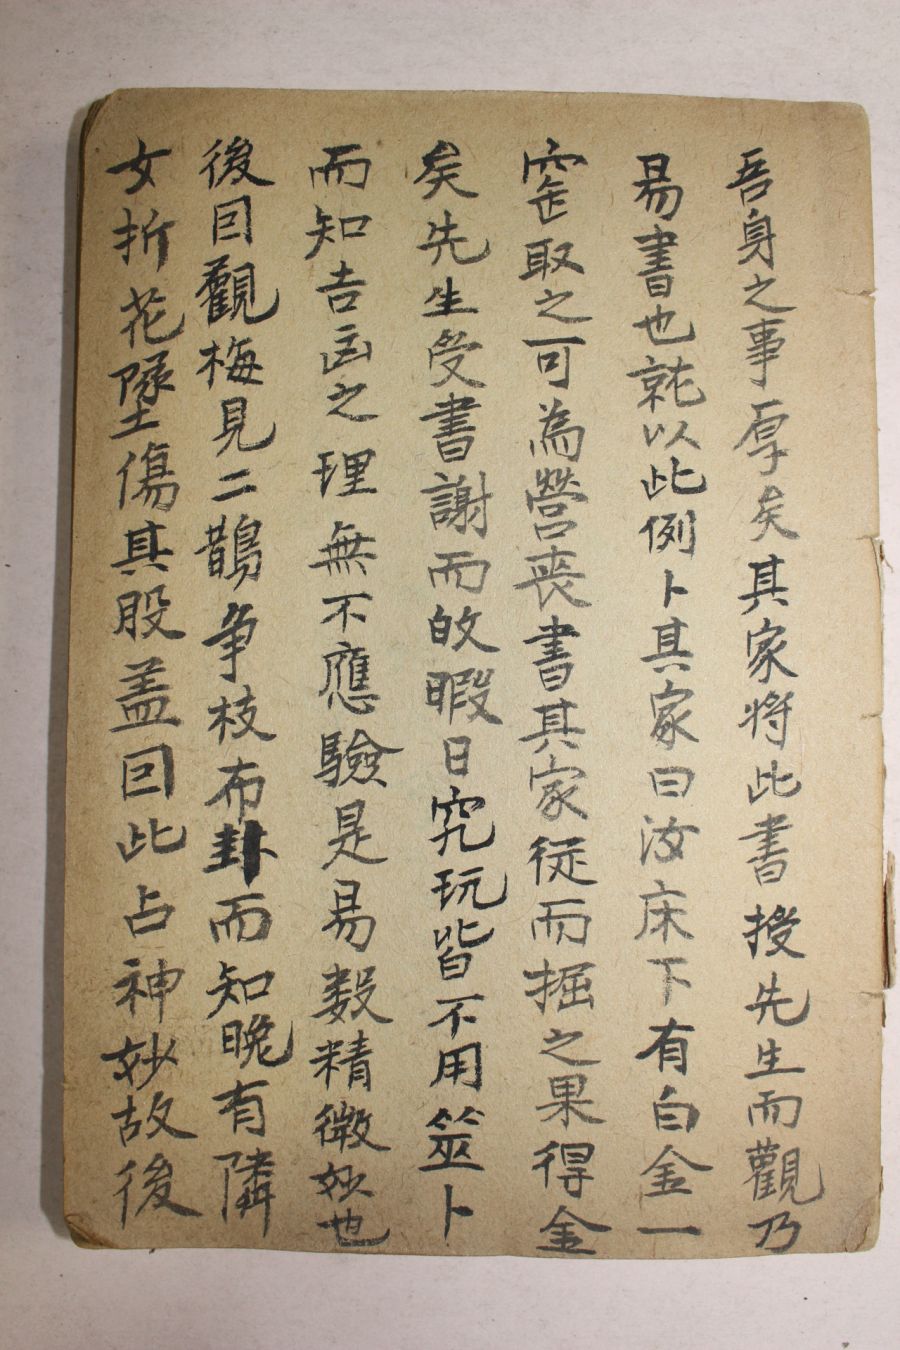 吾身之事厚矣其家將此書授先生而觀乃
易書也就以此例卜其家曰汝床下有白金一
窖取之可為營喪書其家從而掘之果得金
矣先生受書謝而皈暇日究玩皆不用筮卜
而知吉凶之理無不應驗是易数精微妙也
後因觀梅見二鵲争枝布卦而知晩有隣
女折花墜傷其股盖因此占神妙故後